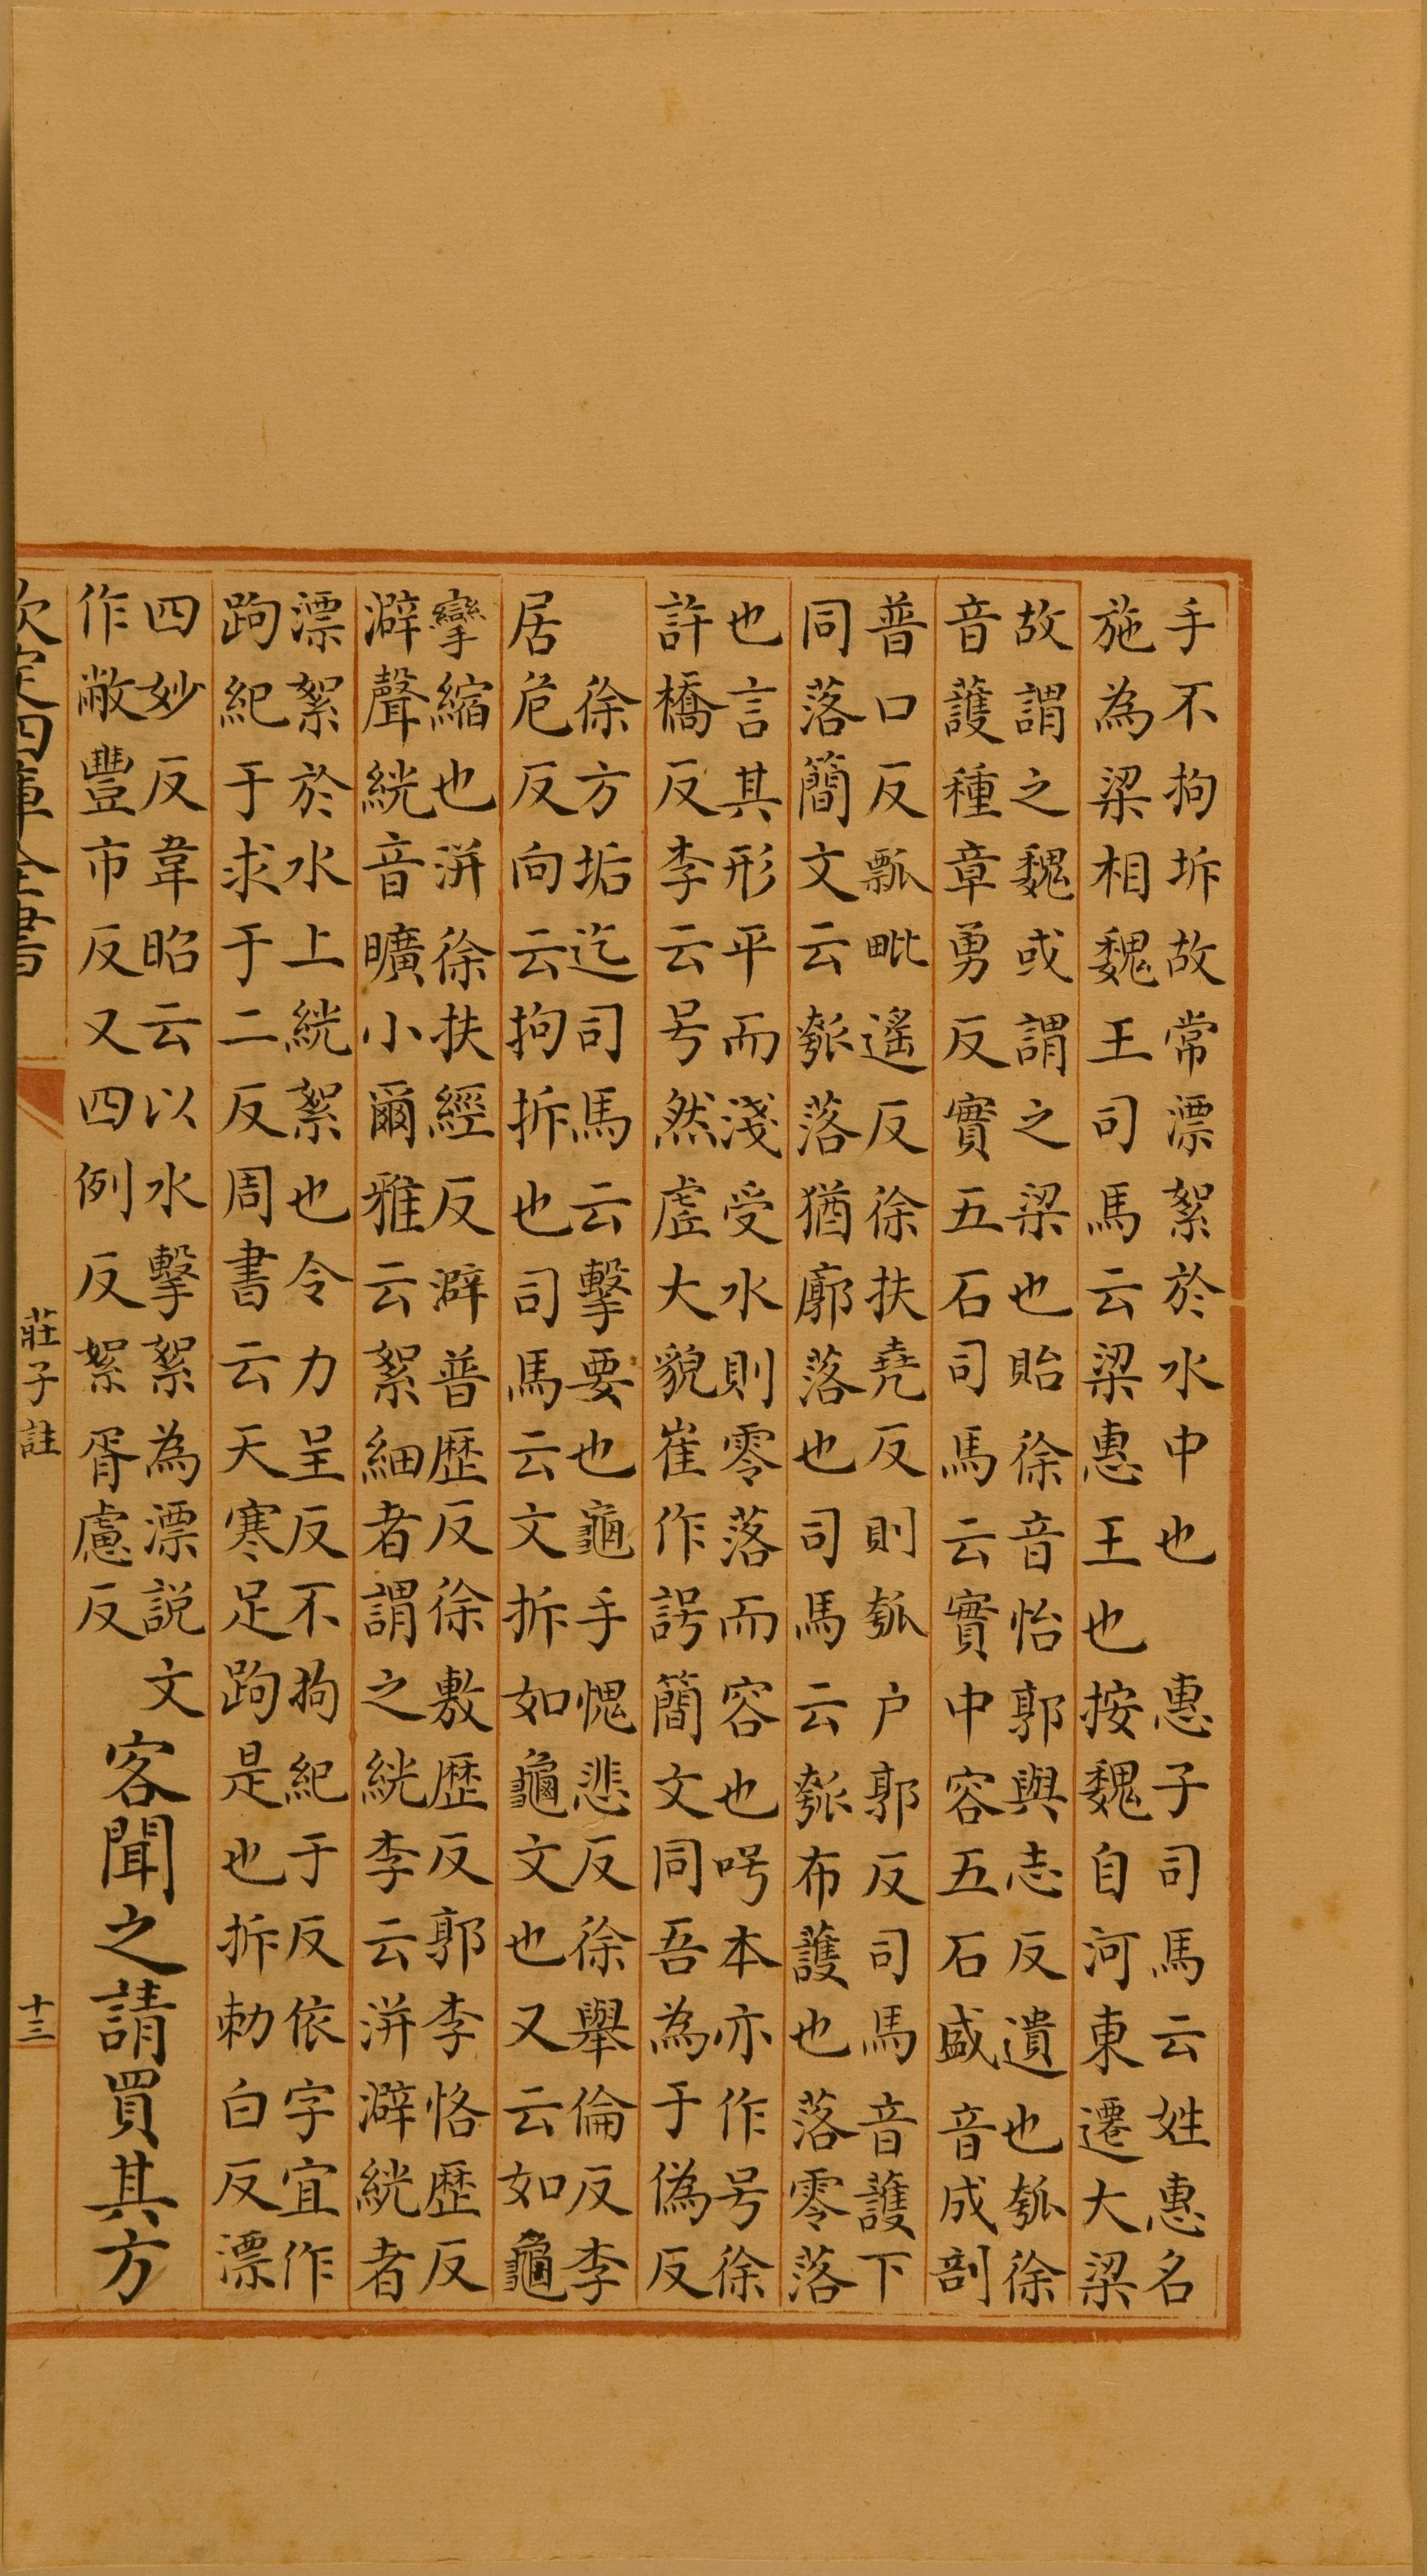 手不拘坼故常漂絮於水中也　惠子司馬云姓惠名
施為梁相魏王司馬云梁惠王也按魏自河東遷大梁
故謂之魏或謂之梁也貽徐音怡郭與志反遺也瓠徐
音護種章勇反實五石司馬云實中容五石盛音成剖
普口反瓢毗遙反徐扶堯反則瓠户郭反司馬音護下
同落簡文云瓠落猶廓落也司馬云瓠布護也落零落
也言其形平而淺受水則零落而容也呺本亦作号徐
許橋反李云号然虛大貌崔作謣簡文同吾為于偽反
徐方垢迄司馬云擊要也龜手愧悲反徐舉倫反李
居危反向云拘拆也司馬云文拆如龜文也又云如龜
攣縮也洴徐扶經反澼普歷反徐敷歷反郭李恪歷反
澼聲絖音曠小爾雅云絮細者謂之絖李云洴澼絖者
漂絮於水上絖絮也令力呈反不拘紀于反依字宜作
跔紀于求于二反周書云天寒足跔是也拆勑白反漂
四妙反韋昭云以水擊絮為漂說文
作敝豐市反又四例反絮胥慮反
客聞之請買其方
欽定四庫全書
莊子註
十三